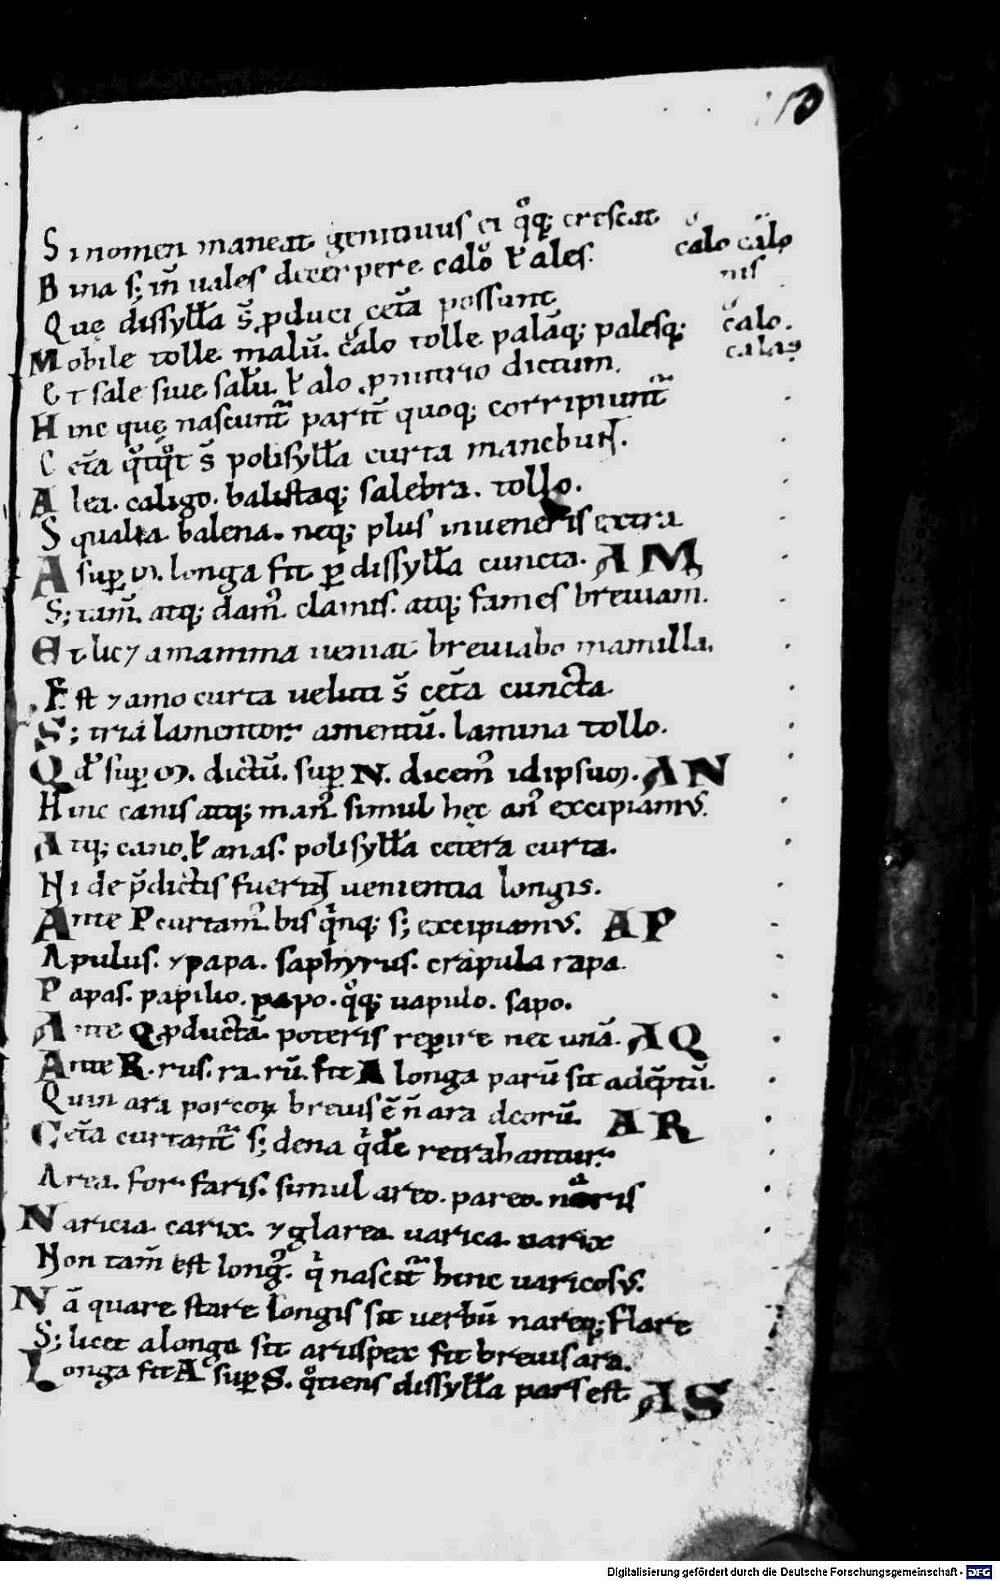 S i nomen maneat genitiuus ei q̊q; crescat
B ina s; in̄ uales decerpere calo̊ ł ales.
Quę dissyll̄a s̄ ꝓduci cet̄a possunt
M obile tolle malū. calo tolle palāq; palesq;
E t sale siue salū. ł alo ꝓ nutrio dictum.
H inc quę nascunt̄ parit̄ quoq; corripiunt̄
C et̄a q̊tq̊t s̄ polisyll̄a curta manebun̄t.
A lea. caligo. balistaq; salebra. tollo.
S qualea balena. neq; plus inueneris extra
A sup̱ m. longa fit p̱ dissyll̄a cuncta. AM
S; tam̄. atq; dam̄. clamis. atq; fames breuiam.
E t lic⁊ a mamma ueniat breuiabo mamilla.
E st ⁊ amo curta veluti s̄ cet̄a cuncta.
S; tria lamentor amentū. lamina tollo.
Q d̄ sup̱ m. dictū. sup̱ N. dicem̄ idipsum. AN
H inc canis atq; man̄. simul hęc an̄ excipiamus.
A tq; cano. ł anas. polisyll̄a cetera curta.
N i de p̄dictis fuerint uenientia longis.
A nte P curtam̄. bis q̇nq; s; excipiamus. AP
A pulus. ⁊ papa. saphyrus. crapula rapa.
P apas. papilio. papo. q̊q; uapulo. sapo.
A nte Q ꝓductā poteris rep̱ire nec unā. AQ
A nte R. rus. ra. rū. fit A longa parū sit adēptū.
Quin ara porcoꝝ breuis ē n̄ ara deorū. AR
C et̄a curtant̄ s; dena q̇de retrahantur.
A rea. for. faris. simul areo. pareo. naris
N aricia. carix. ⁊ glarea. uarica. uarix
N on tam̄ est long̃. q̇ nascit̄ hinc uaricosus.
N ā quare stare longis sit uerbū nareq; flare
S; licet a longa sit aruspex fit breuis ara.
L onga fit A sup̱ S. q̊tiens dissyll̄a pars est AS
calo calo
nis
calo.
calas